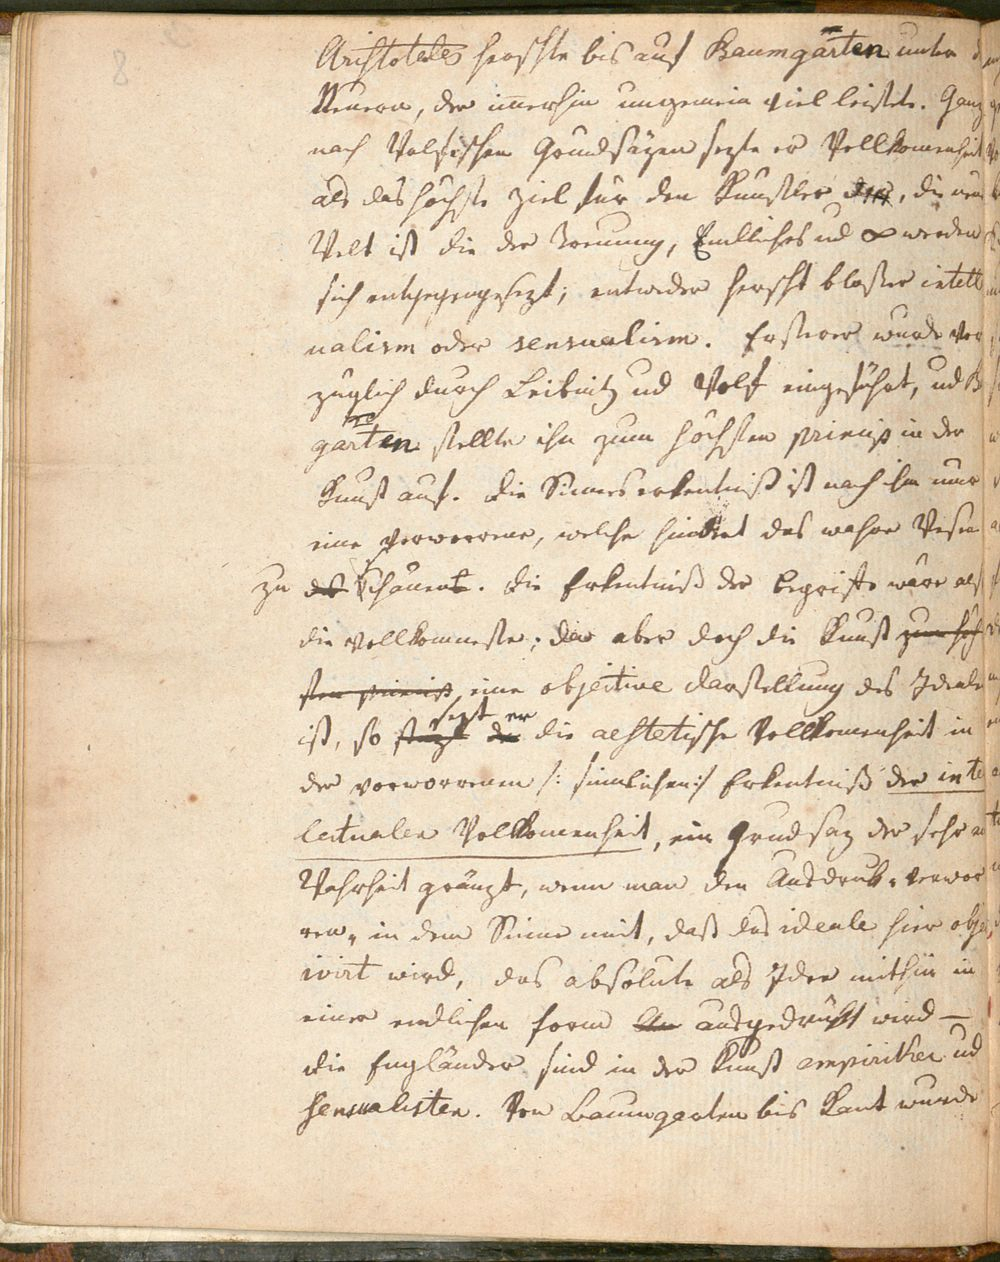 8
Aristoteles herschte bis auf Baumgarten unter d
Neuern, der im̅erhin ungemein viel leistete. Ganz
nach Wolfischen Grundsäzen sezte er Vollkomenheit
als das höchste Ziel für den Künstler, die neue
Welt ist die der Trennung, Endliches ud ∞ werden
sich entgegengesezt; entweder herscht bloßer intell
ualism oder sensualism. Ersterer wurde vor
züglich durch Leibnitz ud Wolf eingeführt, ud B
garten stellte ihn zum höchsten princip in der
Kunst auf. die Sinneserkentniß ist nach ihm nur
eine verworrene, welche hindert das wahre Wesen
zu schauen. die Erkentniß der Begriffe wäre also
die vollkomenste; da aber doch die Kunst zum höch
sten princip eine objective darstellung des Ideals
ist, so sezt er die aestetische Vollkomenheit in
der verworrenen /: sinnlichen :/ Erkentniß der inte
lectualen Vollkomenheit, ein Grundsaz der sehr an
Wahrheit gränzt, wenn man den Ausdruk „verwor
ren„ in dem Sinne nimt, daß das ideale hier obje
ivirt wird, das absolute als Idee mithin in
einer endlichen form ausgedrükt wird —
die Engländer sind in der Kunst empiriker ud
sensualisten. Von Baumgarten bis Kant wurde